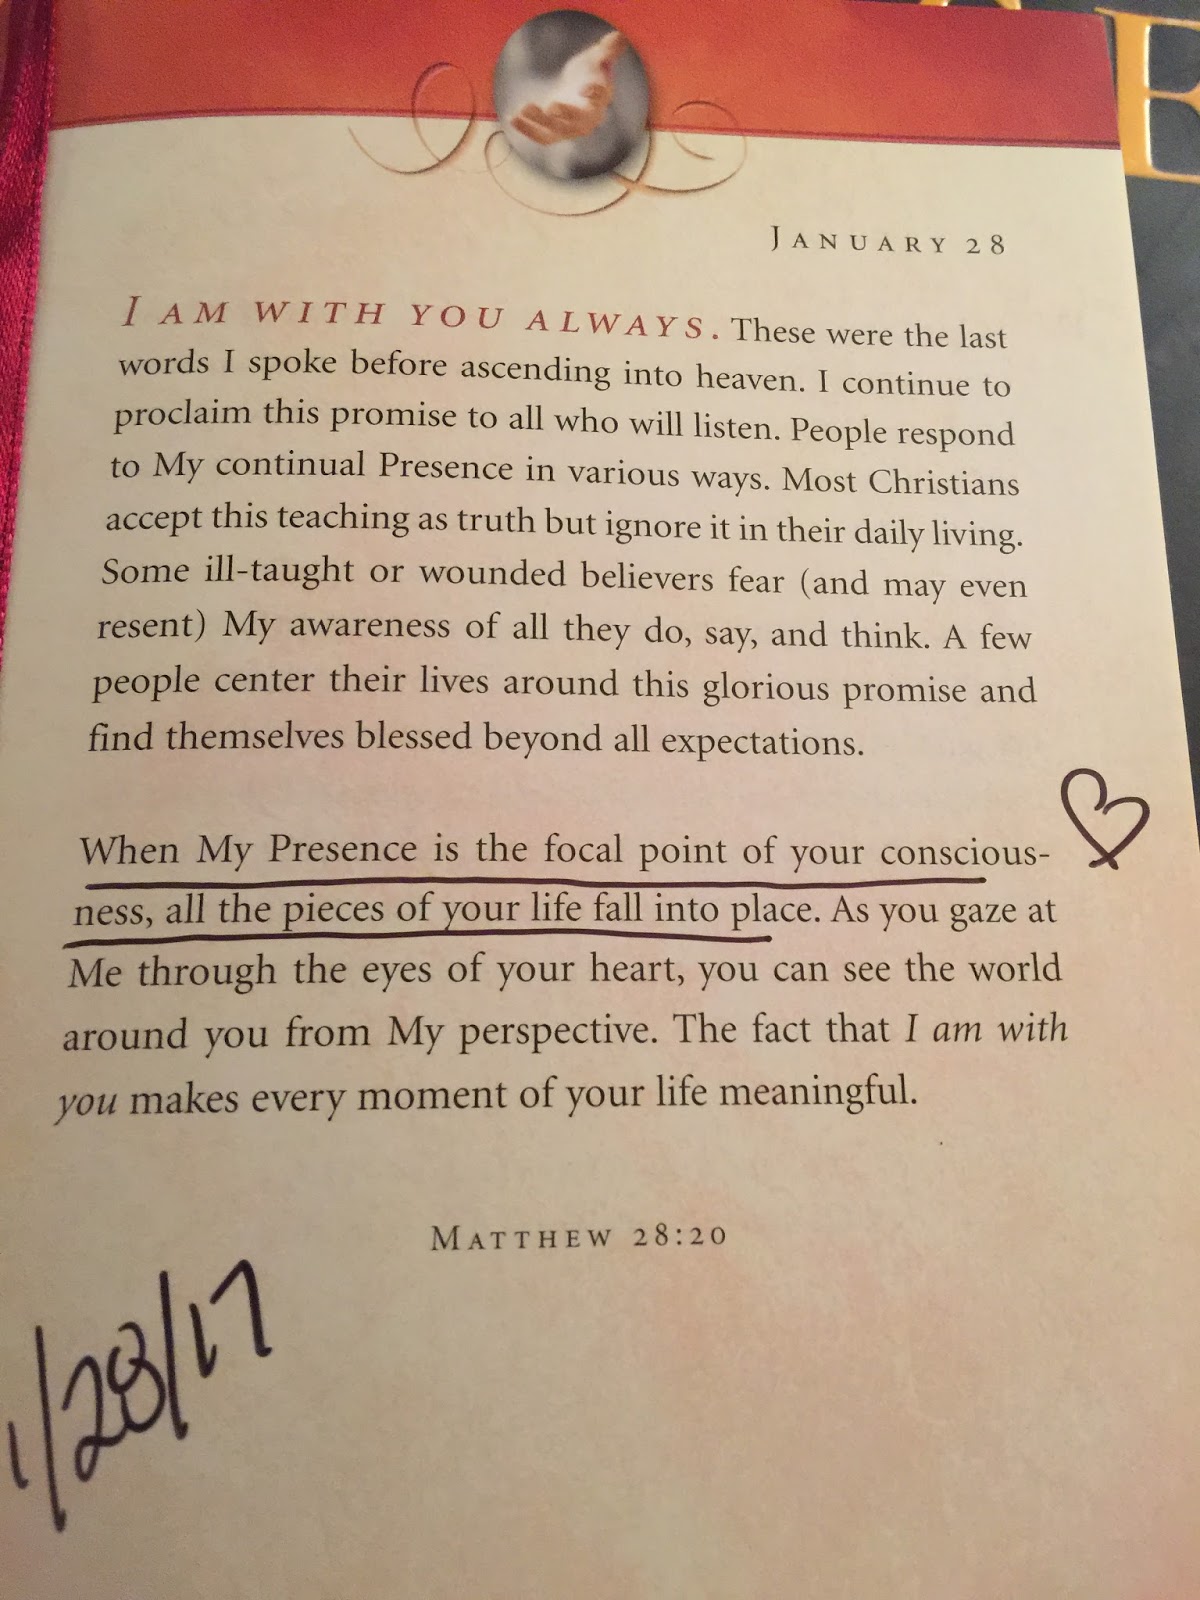 JANUARY 28
I AM WITH YOU ALWAYS. These were the last
words I spoke before ascending into heaven. I continue to
proclaim this promise to all who will listen. People respond
to My continual Presence in various ways. Most Christians
accept this teaching as truth but ignore it in their daily living.
Some ill-taught or wounded believers fear (and may even
resent) My awareness of all they do, say, and think. A few
people center their lives around this glorious promise and
find themselves blessed beyond all expectations.
When My Presence is the focal point of your conscious-
ness, all the pieces of your life fall into place. As you gaze at
Me through the eyes of your heart, you can see the world
around you from My perspective. The fact that I am with
you makes every moment of your life meaningful.
MATTHEW 28:20
1/28/17